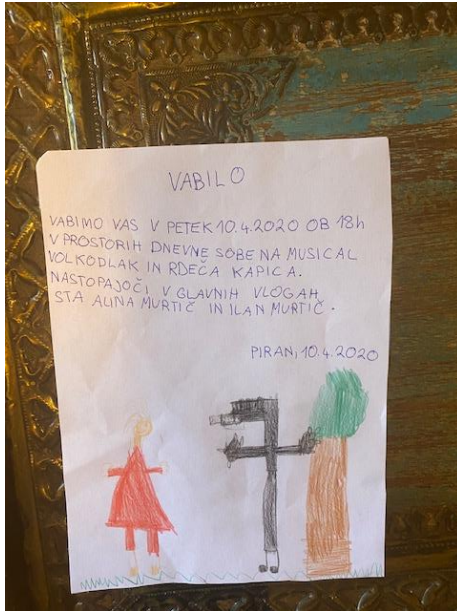 VABILO
VABIMO VAS V PETEK 10.4.2020 OB 18h
V PROSTORIH DNEVNE SOBE NA MUSICAL
VOLKODLAK IN RDEČA KAPICA.
NASTOPAJOČI V GLAVNIH VLOGAH
STA ALINA MURTIČ IN ILAN MURTIČ.
PIRAN, 10.4.2020